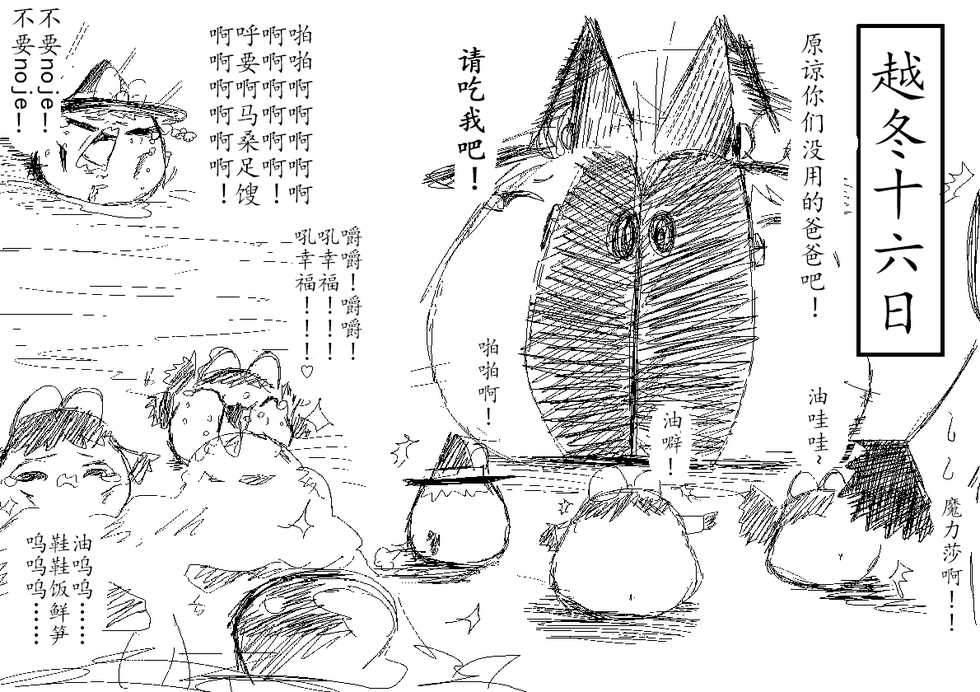 越冬十六日
原谅你们没用的爸爸吧！
请吃我吧！
魔力莎啊！！
油哇哇~
油噼！
啪啪啊！
啪啪啊啊啊啊啊
啊啊啊啊啊啊！
呼要啊马桑足馊
啊啊啊啊啊啊！
不要noje！
不要noje！
嚼嚼！嚼嚼！
吼幸福！！！
吼幸福！！！♡
油呜呜……
鞋鞋饭鲜笋
呜呜呜……